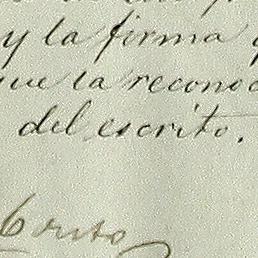 y la firma
que la reconoc
del escrito.